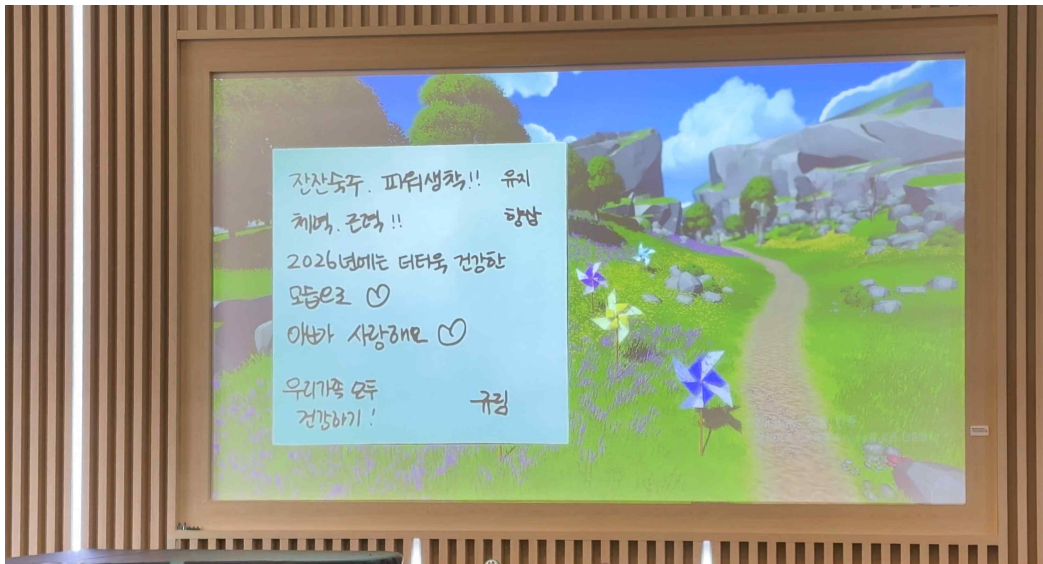 잔잔숙주. 파워생착!! 유지
체력. 근력!! 향상
2026년에는 더더욱 건강한
모습으로 ♡
아빠가 사랑해요 ♡
우리가족 모두
건강하기!
규림